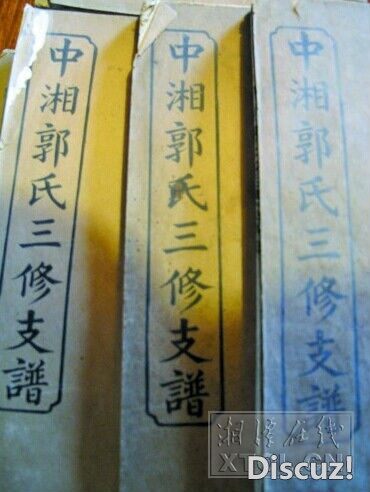 中湘郭氏三修支譜
中湘郭氏三修支譜
中湘郭氏三修支譜
湘潭在线
XTOL.CN
Discuz!